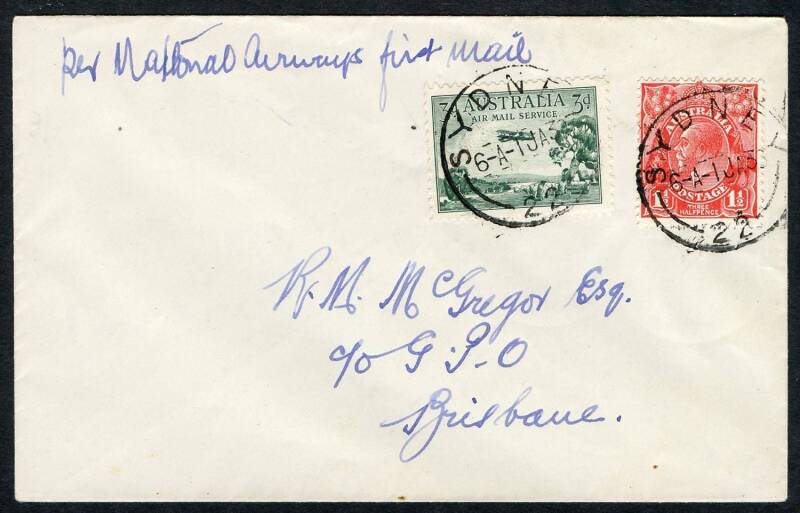 per National Airways first mail
3 AUSTRALIA 3d
AIR MAIL SERVICE
SYDNEY
6-A-1JA3
22
AUSTRALIA
POSTAGE
1½ 1½
THREE
HALFPENCE
SYDNEY
6-A-1JA3
22
R. M. McGregor Esq.
c/o G.P.O
Brisbane.